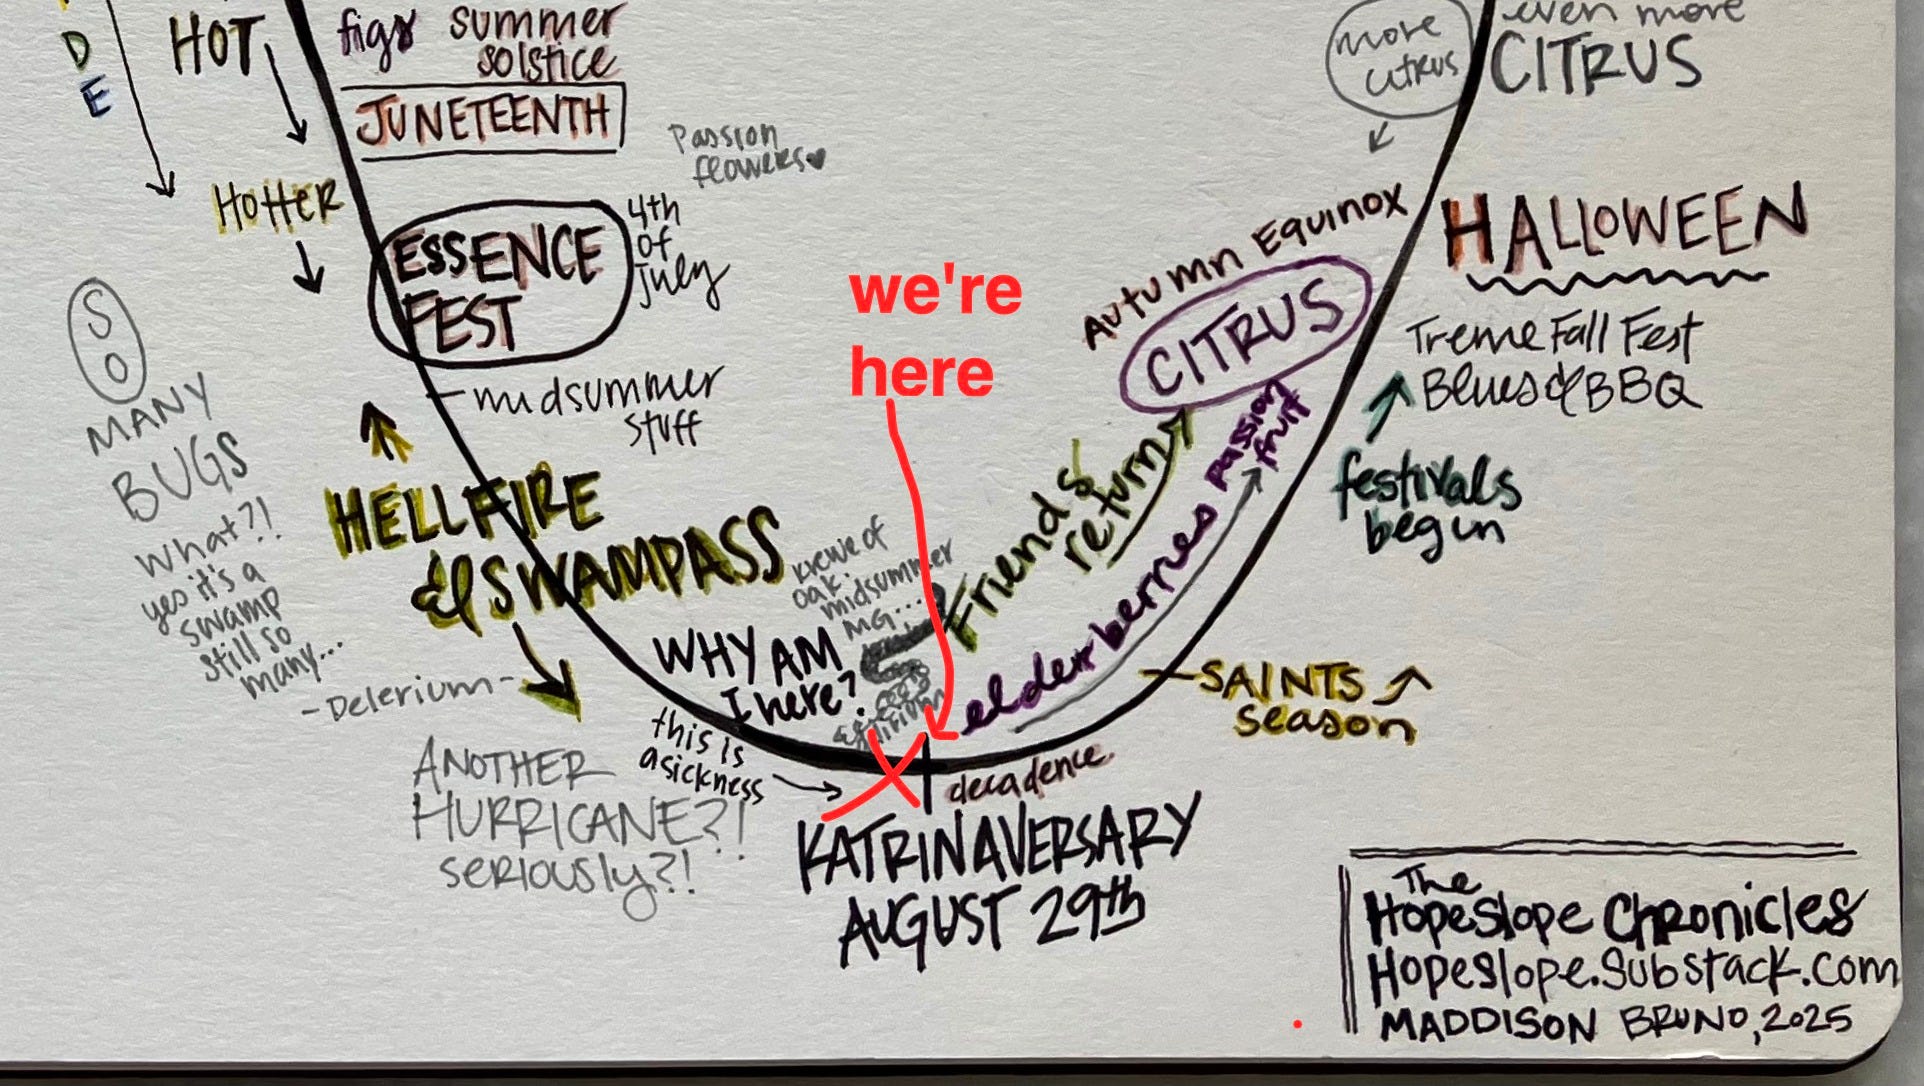 D
E
HOT
figs summer
solstice
JUNETEENTH
Passion
flowers♥
HOTTER
ESSENCE
FEST
4th
of
July
midsummer
stuff
SO
MANY
BUGS
What?!
yes it's a
swamp
still so
many...
HELLFIRE
& SWAMPASS
-Delerium-
ANOTHER
HURRICANE?!
seriously?!
WHY AM
I here?
this is
a sickness
krewe of
oak.
midsummer
MG...
we're
here
KATRINAVERSARY
AUGUST 29th
decadence
elderberries passion
fruit
Friends
return
CITRUS
Autumn Equinox
more
citrus
even more
CITRUS
HALLOWEEN
Treme Fall Fest
Blues & BBQ
festivals
begin
SAINTS
season
The
Hopeslope Chronicles
Hopeslope.Substack.com
MADDISON BRUNO, 2025